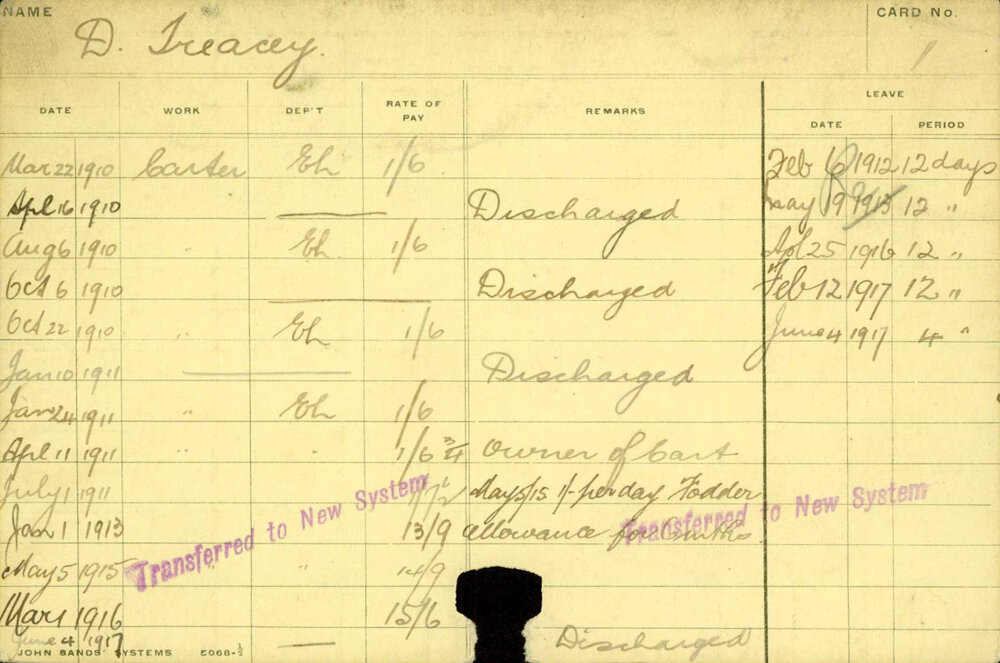 NAME D. Treacey. CARD No. 1
DATE WORK DEP'T RATE OF PAY REMARKS LEAVE
DATE PERIOD
Mar 22 1910 Carter Eh 1/6 Feb 1912 12 days
Apl 16 1910 — Discharged May 19 1915 12 "
Aug 6 1910 " Eh 1/6 Apl 25 1916 12 "
Oct 6 1910 — Discharged Feb 12 1917 12 "
Oct 22 1910 " Eh 1/6 June 4 1917 4 "
Jan 10 1911 — Discharged
Jan 24 1911 " Eh 1/6
Apl 11 1911 " " 1/6 3/4 Owner of Cart
July 1 1911 1/7 1/2 May 5/15 1/- per day Fodder
Jan 1 1913 13/9 allowance for mths
Transferred to New System
Transferred to New System
May 5 1915 " " 14/9
Mar 1 1916 15/6
June 4 1917 — Discharged
JOHN SANDS' SYSTEMS E068-½